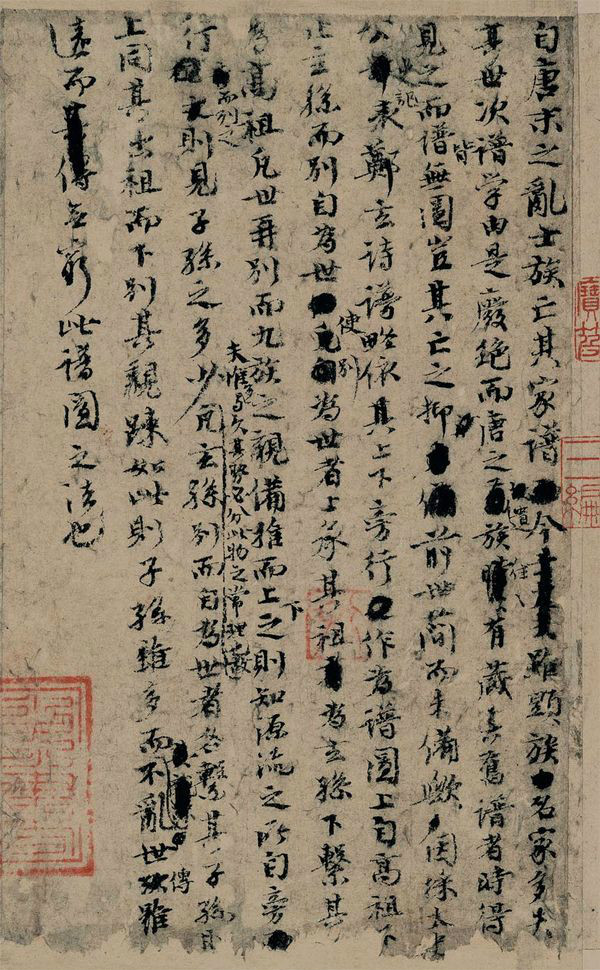 自唐末之亂士族亡其家譜今雖顯族名家多失
其世次譜學由是廢絕而唐之遺族往往有藏其舊譜者時得
見之而譜皆無圖豈其亡之抑前世簡而未備歟因採太史
公史記表鄭玄詩譜略依其上下旁行作為譜圖上自高祖下
止玄孫而別自為世使別自為世者上承其祖為玄孫下繫其
為高祖凡世再別而九族之親備推而上下之則知源流之所自旁
行而列之則見子孫之多少夫惟多與久其勢必分此物之常理也凡玄孫別而自為世者各繫其子孫且
上同其出祖而下別其親疎如此則子孫雖多而不亂世傳雖
遠而其傳無窮此譜圖之法也